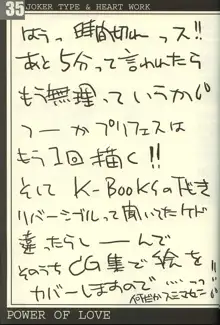 35 JOKER TYPE & HEART WORK
はうっ 時間切れっス!!
あと5分って言われたら
もう無理っていうかい
つーかプリフェスは
もう1回描く!!
そして K-BOOKSの
リバーシブルって聞いてたケド
違ったらしーんで
そのうちCG集で絵を
カバーしますので……っっ
何だかスミマセン
POWER OF LOVE